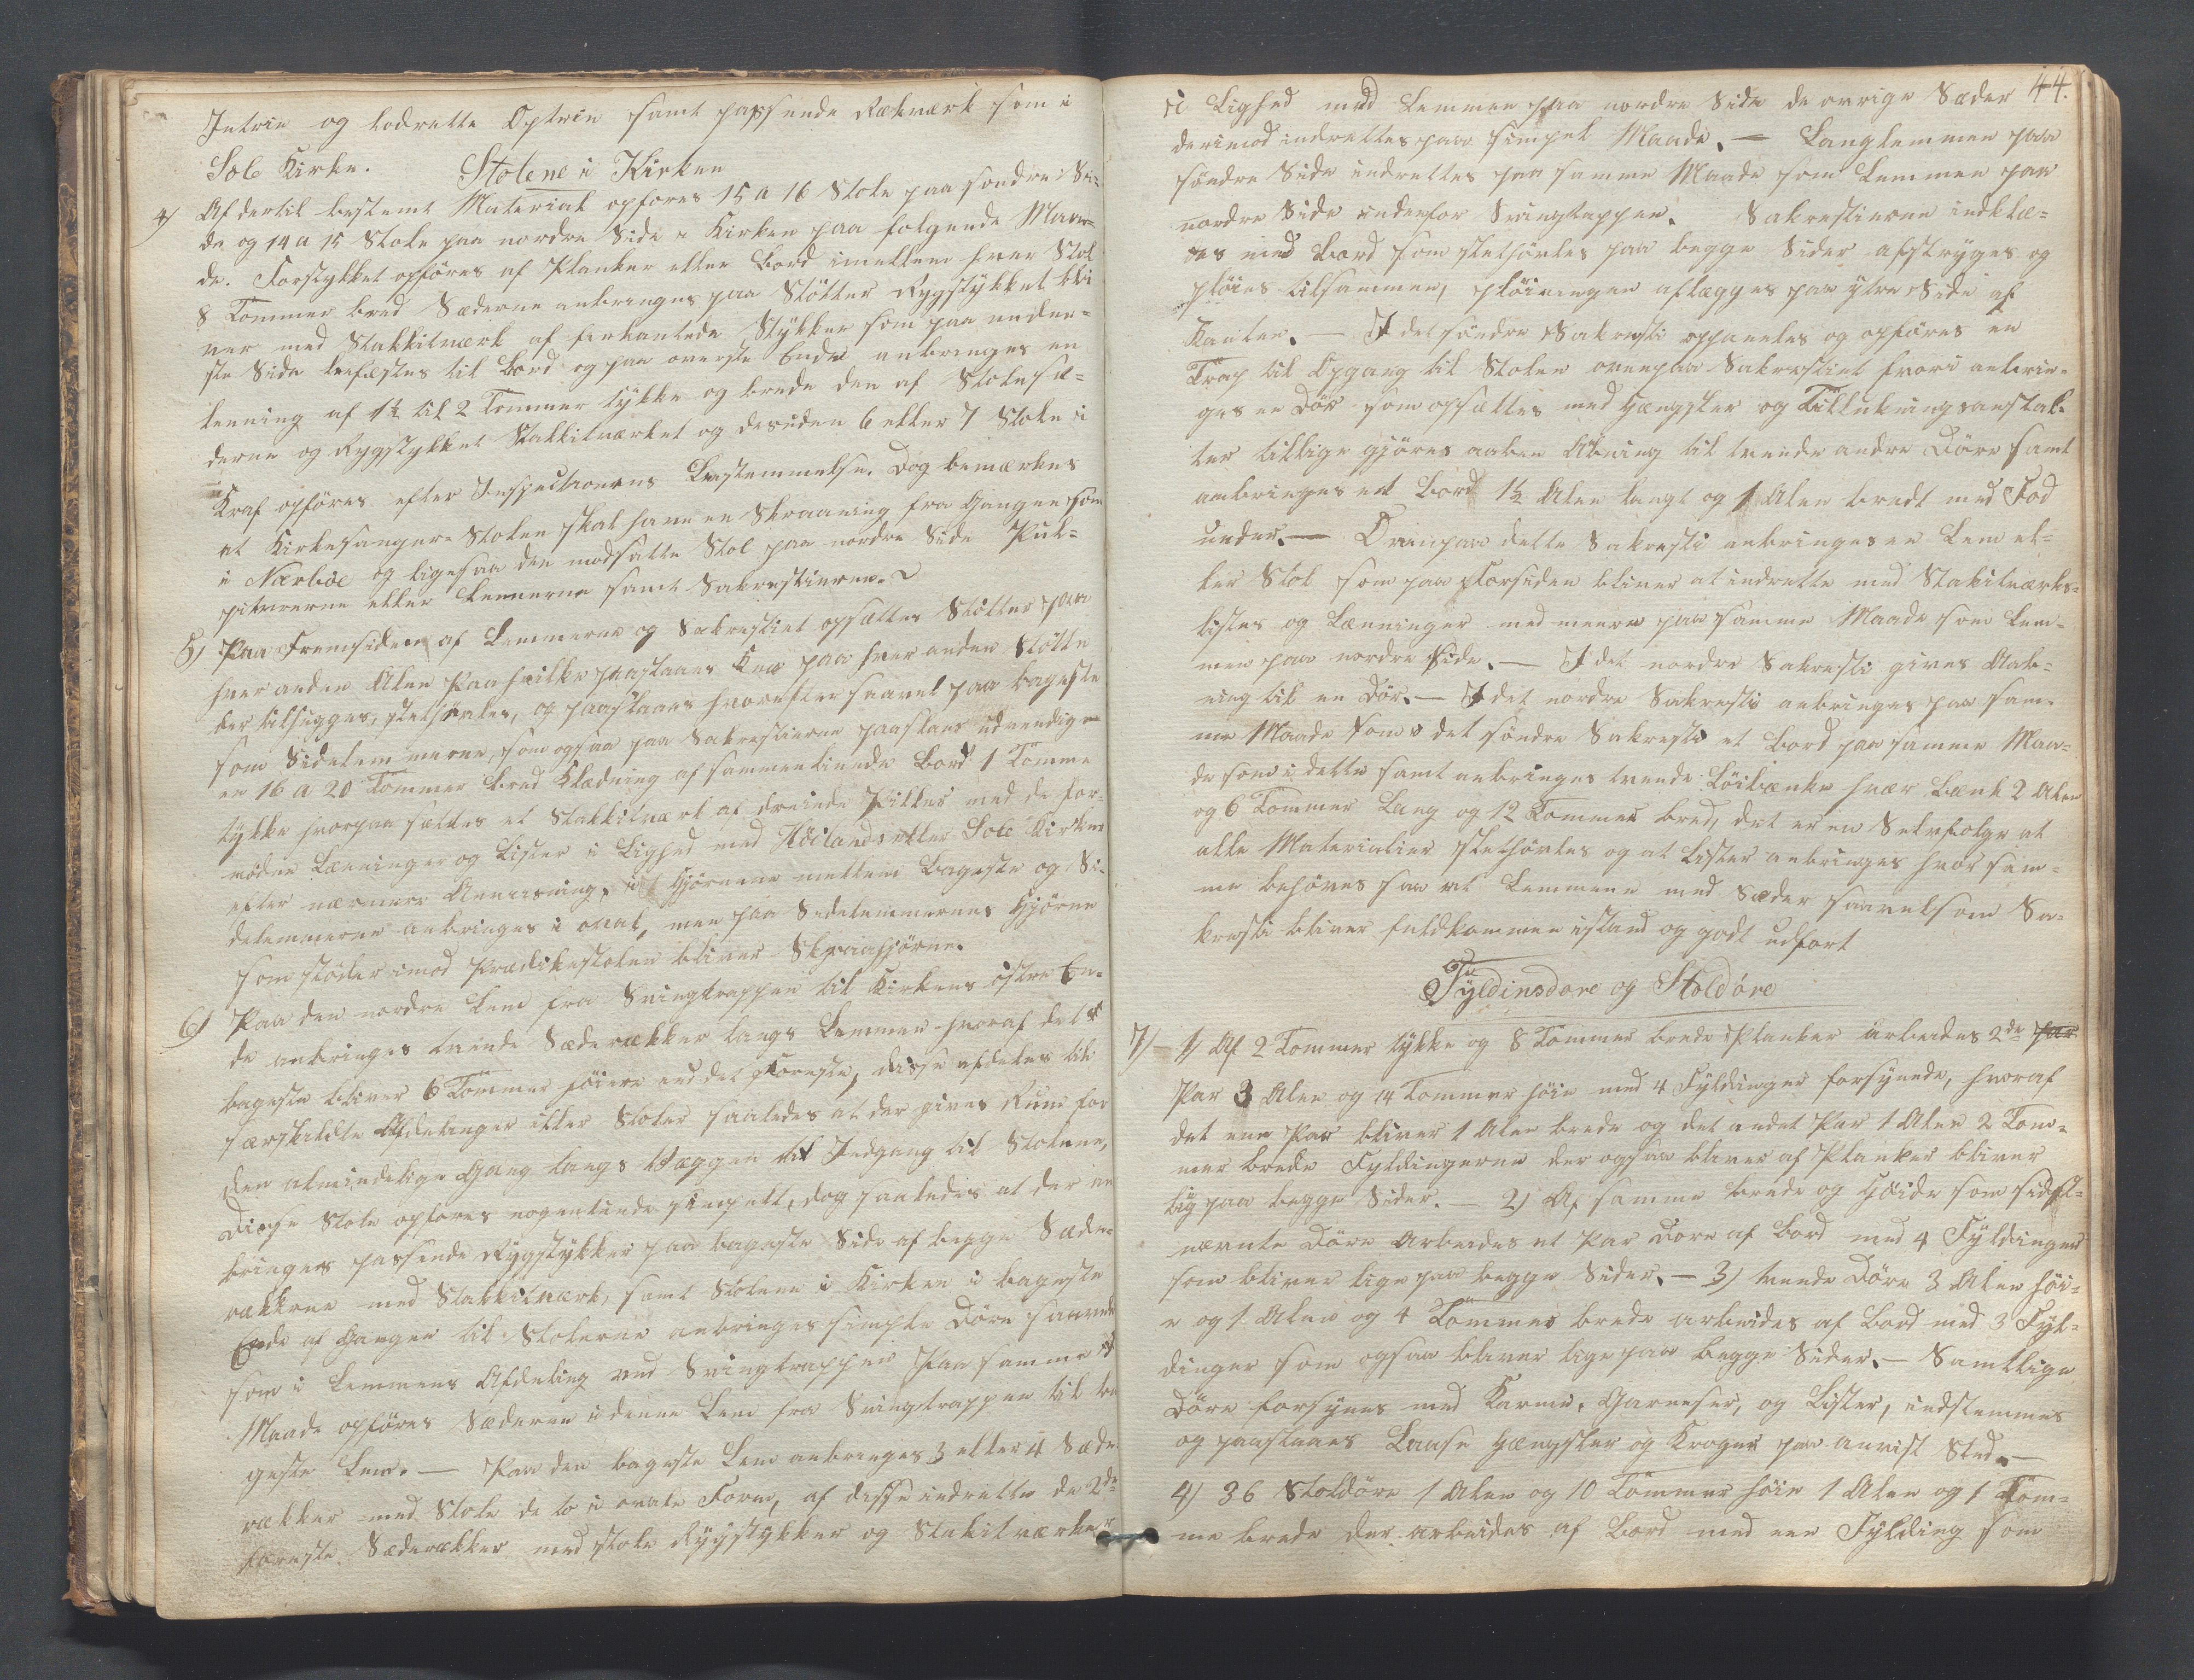 Intrin og lodrette Optrin samt passende Rækværk som i
Sole Kirke. Stolene i Kirken
4) Af dertil bestemt Material opføres 15 a 16 Stole paa søndre Si-
de og 14 a 15 Stole paa nordre Side i Kirken paa følgende Maa-
de. Forstykket opføres af Planker eller Bord imellem hver Stol
8 Tommer bred Sæderne anbringes paa Støtter Rygstykket bli
ver med Stakkitværk af firkantede Stykker som paa neder-
ste Side befæstes til Bord og paa øverste Ende anbringes en
lenning af 1½ til 2 Tommer tykke og brede den af Stolesæ-
derne og Rygstykket Stakkitværket og desuden 6 eller 7 Stole i
Kraf opføres efter Inspectionens Bestemmelse. Dog bemærkes
at Kirkesanger Stolen skal have en Skraaning fra Gangen som
i Nærbøe og ligesaa den modsatte Stol paa nordre Side Pul-
piturerne eller Lemmerne samt Sakrestierne.
5) Paa Fremsiden af Lemmerne og Sakrestiet opsættes Støtter paa
hver anden Alen Paa hvilke paastaaes Knæ paa hver anden Støtte
der tilhugges, slethøvles, og paaslaaes hvorefter saavel paa bageste
som Sidelemmerne, som ogsaa paa Sakrestierne paaslaaes udvendig
en 16 a 20 Tommer bred Klædning af sammenlimede Bord 1 Tomme
tykke hvorpaa sættes et Stakkitværk af dreiede Piller med de for-
nødne Lænninger og Lister i Lighed med Høilands eller Sole Kirker
efter nærmere Anviisning, i Hjørnene mellem bageste og Si-
delemmerne anbringes i oval, men paa Sidelemmernes Hjørne
som støder imod Prædikestolen bliver Skraahjørne.
6) Paa den nordre Lem fra Svingtrappen til Kirkens østre En-
de anbringes tvende Sæderækker langs Lemmen hvoraf det
bageste bliver 6 Tommer høiere end det forreste, disse afdeles til
særskildte Afdelinger eller Stoler saaledes at der gives Rum for
den almindelige Gang langs Væggen til Indgang til Stolene,
Disse Stole opføres nogenlunde simpelt, dog saaledes at der an
bringes passende Rygstykker paa bageste Side af begge Sæde-
rækkene med Stakkitværk, samt Stolene i Kirken i bageste
Ende af Gangen til Stolerne anbringes simple Døre saavel
som i Lemmens Afdeling ved Svingtrappen Paa samme
Maade opføres Sæderne i denne Lem fra Svingtrappen til ba
geste Lem. — Paa den bageste Lem anbringes 3 eller 4 Sæde
rækker med Stole de to i ovale Form, af disse indrettes de 2de
forreste Sæderækker med stole Rygstykker og Stakitværker
44.
i Lighed med Lemmen paa nordre Side de øvrige Sæder
derimod indrettes paa simpel Maade. — Langlemmen paa
søndre Side indrettes paa samme Maade som Lemmen paa
nordre Side indenfor Svingtappen. Sakrestierne indklæ-
des med Bord som slethøvles paa begge Sider afstryges og
pløies tilsammen, pløiningen aflægges paa ytre Side af
Kanten. — I det søndre Sakresti oppaneles og opføres en
Trap til Opgang til Stolen ovenpaa Sakrestiet hvori anbrin-
ges en Dør som opsættes med Hængsler og Tillukningsanstal-
ter tillige gjøres aaben Abning til tvende andre Døre samt
anbringes et Bord 1½ Alen langt og 1 Alen bredt med Fod
under. — Ovenpaa dette Sakresti anbringes en Lem el-
ler Stol som paa Forsiden bliver at indrette med Stakitværks-
lister og Lænninger med meere paa samme Maade som Lem-
men paa nordre Side. — I det nordre Sakresti gives Aab-
ning til en Dør. — I det nordre Sakresti anbringes paa sam-
me Maade som i det søndre Sakresti et Bord paa samme Maa-
de som i dette samt anbringes tvende Løsbænke hvær Bænk 2 Alen
og 6 Tommer Lang og 12 Tommer bred, det er en Selvfølge at
alle Materialier slethøvles og at Lister anbringes hvor sam-
me behøves saa at Lemmene med Sæder saavelsom Sa-
kresti bliver fuldkommen istand og godt udført
Fyldinsdøre og Stoldøre
7) 1) Af 2 Tommer tykke og 8 Tommer brede Planker arbeides 2de Par
Par 3 Alen og 4 Tommer høie med 4 Fyldinger forsynede, hvoraf
det ene Par bliver 1 Alen brede og det andet Par 1 Alen 2 Tom-
mer brede Fyldingerne der ogsaa bliver af Planker bliver
lig paa begge Sider. — 2) Af samme brede og Høide som sidst-
nævnte Døre Arbeides et Par Døre af Bord med 4 Fyldinger
som bliver lige paa begge Sider. — 3) tvende Døre 3 Alen høi-
e og 1 Alen og 4 Tommer brede arbeides af Bord med 3 Fyl-
dinger som ogsaa bliver lige paa begge Sider. — Samtlige
Døre forsynes med Karme, Garneser, og Lister, indstemmes
og paaslaaes Laase Hængsler og Kroger paa anvist Sted. —
4) 36 Stoldøre 1 Alen og 10 Tommer høie 1 Alen og 1 Tom-
me brede der arbeides af Bord med een Fylding som